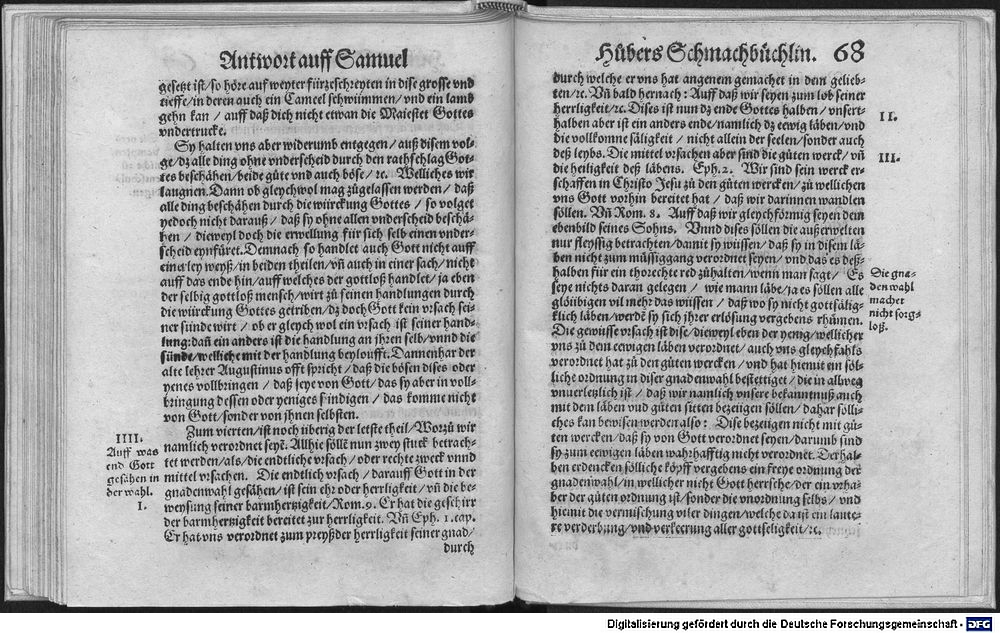 Antwort auff Samuel
gesetzt ist/ so höre auf weyter fürzeschreyten in dise grosse vnd
tieffe/ in deren auch ein Cameel schwümmen/ vnd ein lamb
gehn kan / auff daß dich nicht etwan die Maiestet Gottes
vndertrucke.
Sy halten vns aber widerumb entgegen/ auß disem vol-
ge/ dz alle ding ohne vnderscheid durch den rathschlag Got-
tes beschähen/ beide gůte vnd auch böse/ ꝛc. Welliches wir
laugnen. Dann ob gleychwol mag zůgelassen werden/ daß
alle ding beschähen durch die würckung Gottes / so volget
yedoch nicht darauß/ daß sy ohne allen vnderscheid beschä-
hen / dieweyl doch die erwellung für sich selb einen vnder-
scheid eynfüret. Demnach so handlet auch Gott nicht auff
einerley weyß/ in beiden theilen/ vñ auch in einer sach/ nicht
auff das ende hin/ auff welches der gottloß handlet/ ja eben
der selbig gottloß mensch/ wirt zů seinen handlungen durch
die würckung Gottes getriben/ dz doch Gott kein vrsach sei-
ner sünde wirt / ob er gleych wol ein vrsach ist seiner hand-
lung: dañ ein anders ist die handlung an jhren selb/ vnnd die
sünde/ welliche mit der handlung beyloufft. Dannenhar der
alte lehrer Augustinus offt spricht / daß die bösen dises oder
yenes vollbringen / daß seye von Gott/ das sy aber in voll-
bringung dessen oder yeniges sündigen / das komme nicht
von Gott/ sonder von jhnen selbsten.
IIII.
Auff was
end Gott
gesähen in
der wahl.
I.
Zum vierten/ ist noch überig der letste theil/ Worzů wir
namlich verordnet seyẽ. Allhie söllẽ nun zwey stuck betrach-
tet werden/ als/ die endtliche vrsach/ oder rechte zweck vnnd
mittel vrsachen. Die endtlich vrsach / darauff Gott in der
gnadenwahl gesähen/ ist sein ehr oder herrligkeit/ vñ die be-
weysung seiner barmhertzigkeit/ Rom. 9. Er hat die geschirr
der barmhertzigkeit bereitet zur herrligkeit. Vñ Eph. 1. cap.
Er hat vns verordnet zum preyß der herrligkeit seiner gnad/
durch
Hůbers Schmachbüchlin. 68
durch welche er vns hat angenem gemachet in dem gelieb-
ten/ ꝛc. Vñ bald hernach: Auff daß wir seyen zum lob seiner
herrligkeit/ ꝛc. Dises ist nun dz ende Gottes halben/ vnsert-
halben aber ist ein anders ende/ namlich dz eewig läben/ vnd
die vollkomne säligkeit / nicht allein der seelen/ sonder auch
deß leybs. Die mittel vrsachen aber sind die gůten werck/ vñ
die heiligkeit deß läbens. Eph. 2. Wir sind sein werck er-
schaffen in Christo Jesu zů den gůten wercken/ zů wellichen
vns Gott vorhin bereitet hat / daß wir darinnen wandlen
söllen. Vñ Rom. 8. Auff daß wir gleychförmig seyen dem
ebenbild seines Sohns. Vnnd dises söllen die außerwelten
nur fleyssig betrachten/ damit sy wüssen/ daß sy in disem lä-
ben nicht zum müssiggang verordnet seyen/ vnd das es deß-
halben für ein thorechte red zůhalten/ wenn man sagt/ Es
seye nichts daran gelegen / wie mann läbe/ ja es söllen alle
glöübigen vil mehr das wüssen / daß wo sy nicht gottsälig-
klich läben/ werdẽ sy sich jhrer erlösung vergebens rhümen.
Die gewüsse vrsach ist dise/ dieweyl eben der yenig/ wellicher
vns zů dem eewigen läben verordnet/ auch vns gleychfahls
verordnet hat zů den gůten wercken / vnd hat hiemit ein söl-
liche ordnung in diser gnadenwahl bestettiget / die in allweg
vnuerletzlich ist / daß wir namlich vnsere bekanntnuß auch
mit dem läben vnd gůten sitten bezeügen söllen/ dahar sölli-
ches kan bewisen werden also: Dise bezeügen nicht mit gů-
ten wercken/ daß sy von Gott verordnet seyen/ darumb sind
sy zum eewigen läben wahrhafftig nicht verordnet. Derhal-
ben erdencken sölliche köpff vergebens ein freye ordnung der
gnadenwahl/ in wellicher nicht Gott herrsche/ der ein vrha-
ber der gůten ordnung ist/ sonder die vnordnung selbs / vnd
hiemit die vermischung viler dingen/ welche da ist ein laute-
re verderbung/ vnd verkeerung aller gottseligkeit/ ꝛc.
II.
III.
Die gna-
den wahl
machet
nicht sorg-
loß.
Digitalisierung gefördert durch die Deutsche Forschungsgemeinschaft - DFG